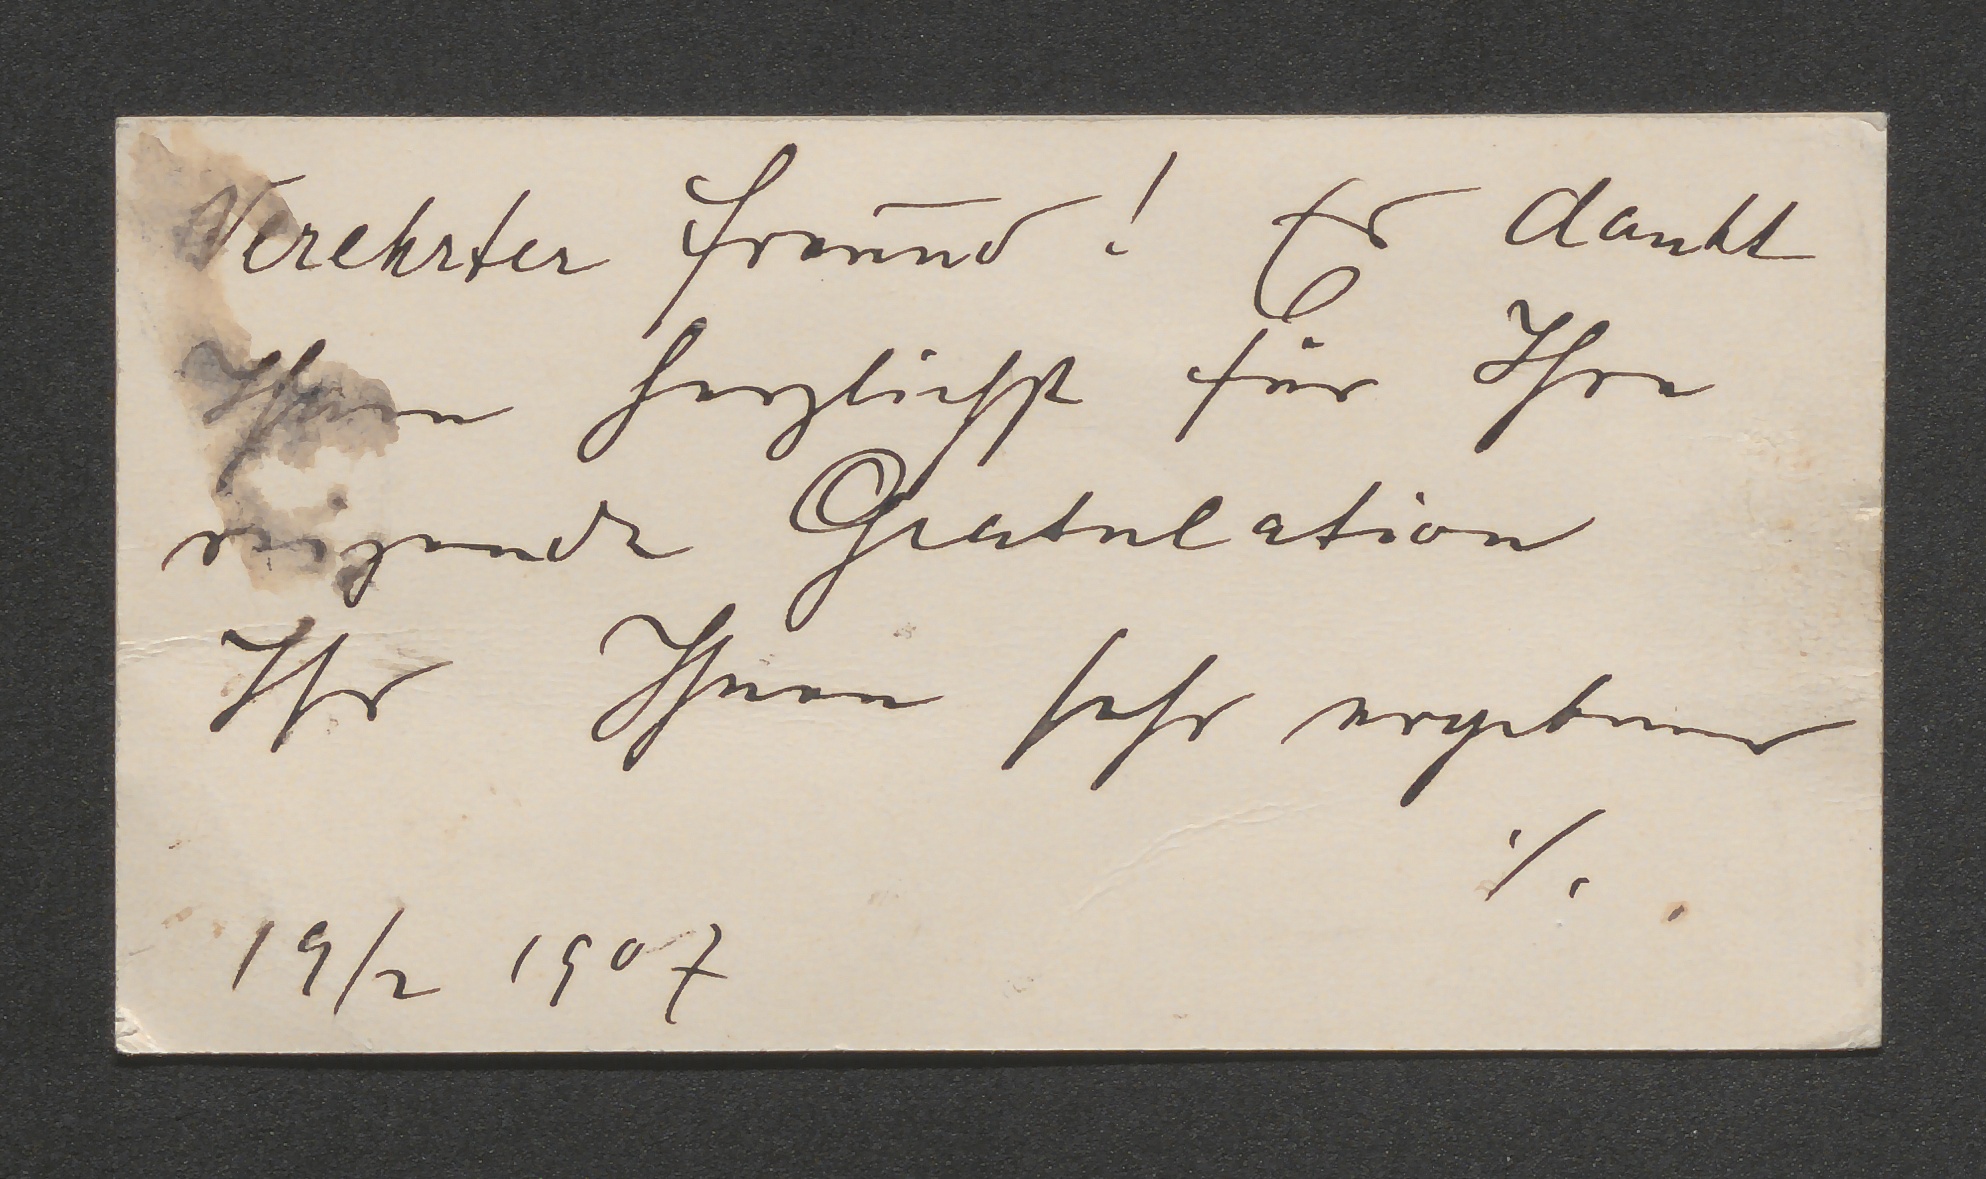 Verehrter Freund! Es dankt
Ihnen herzlichst für Ihre
reizende Gratulation
Ihr Ihnen sehr ergebener
./.
19/2 1907